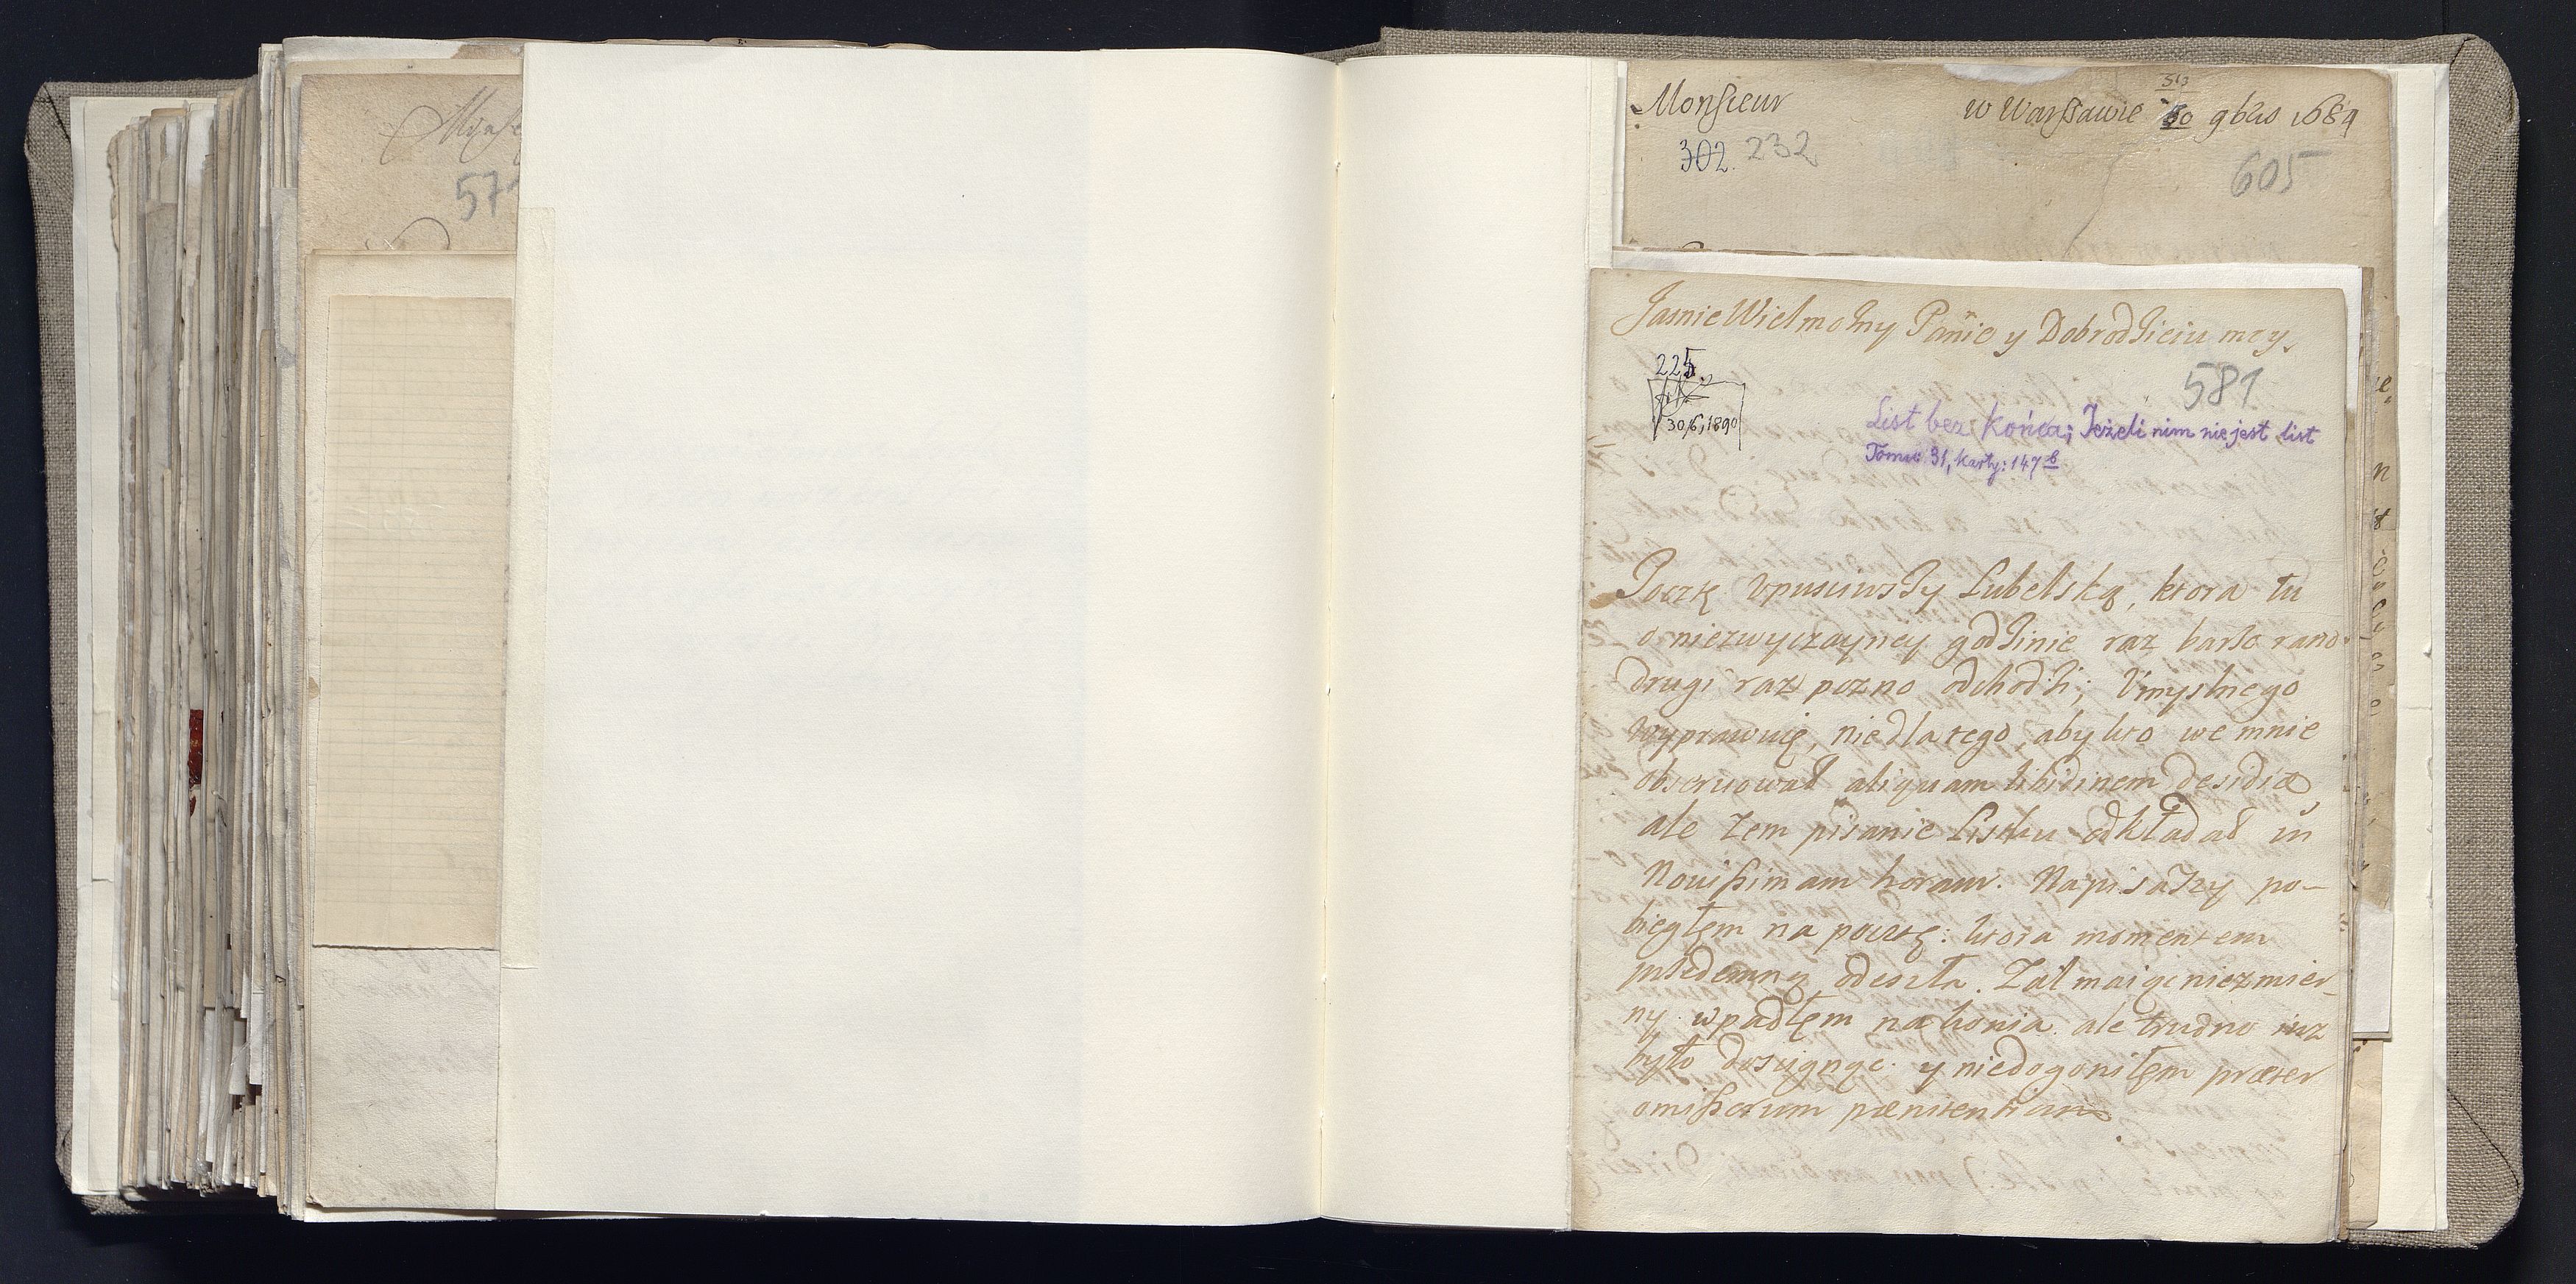 Monsieur
57
Monsieur w Warszawie 30 9bris 1689
302. 232
605
JasnieWielmożny Panie y Dobrodzieiu moy
581
225.
30/6, 1890
List bez końca; Jeżeli nim nie jest list
Tomu: 31, karty: 147 b
Pocztę vpusciwszy Lubelską, ktora tu
o niezwyczayney godzinie raz barzo rano
drugi raz pozno odchodzi; Vmyslnego
wyprawuię, niedlatego, aby kto we mnie
obseruował aliquam libidinem desidiæ
ale żem pisanie Listu odkładał in
Nouissimam horam. Napisazy po-
biegłęm na pocztę: ktora momentem
przedemną odeszła. Zal maiąc niezmier-
ny wpadłęm na konia. ale trudno iuz
było dosiągnąc. y niedogoniłęm præter
omissorum pœnitentiam